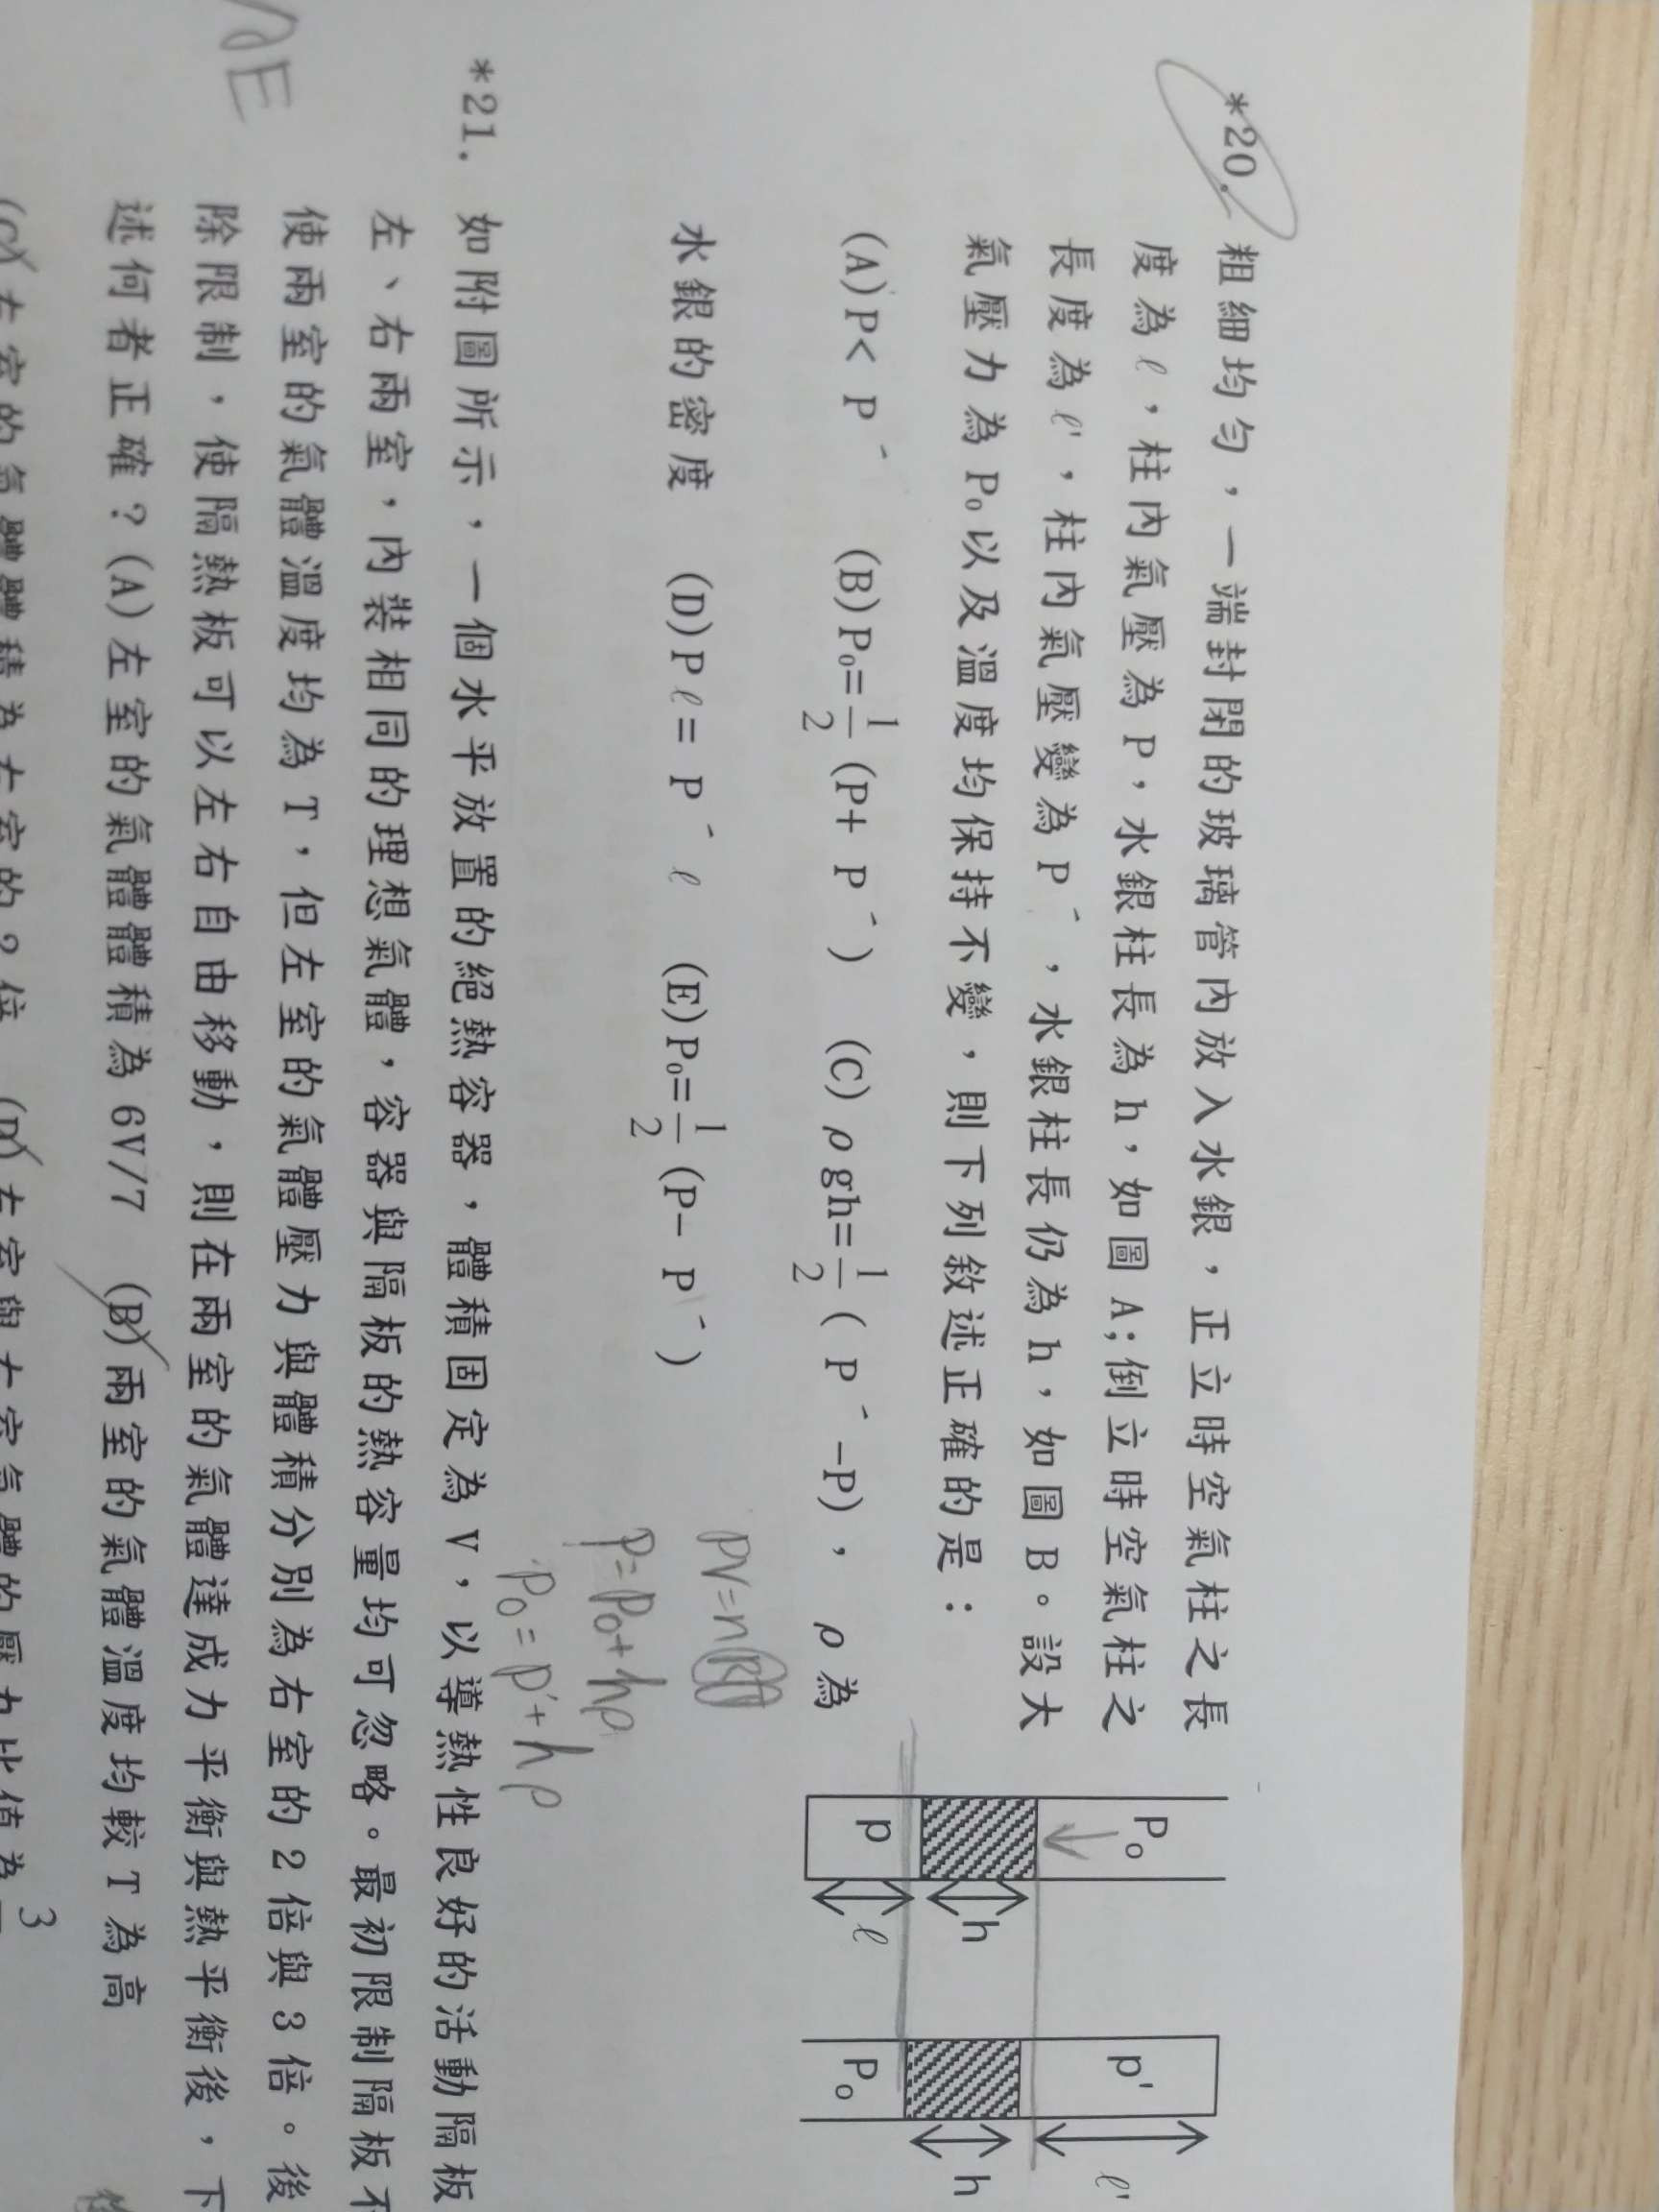 *20. 粗細均勻，一端封閉的玻璃管內放入水銀，正立時空氣柱之長
度為ℓ，柱內氣壓為P，水銀柱長為h，如圖A；倒立時空氣柱之
長度為ℓ'，柱內氣壓變為P′，水銀柱長仍為h，如圖B。設大
氣壓力為P₀以及溫度均保持不變，則下列敘述正確的是：
(A)P< P′ (B)P₀=1/2 (P+ P′) (C)ρgh=1/2 ( P′ -P)， ρ為
水銀的密度 (D)Pℓ= P′ ℓ (E)P₀=1/2 (P- P′)
PV=n
P=P₀+hρ
P₀=P'+hρ
P₀
h
P
ℓ
P'
ℓ'
h
P₀
*21. 如附圖所示，一個水平放置的絕熱容器，體積固定為V，以導熱性良好的活動隔板
左、右兩室，內裝相同的理想氣體，容器與隔板的熱容量均可忽略。最初限制隔板不
使兩室的氣體溫度均為T，但左室的氣體壓力與體積分別為右室的2倍與3倍。後
除限制，使隔熱板可以左右自由移動，則在兩室的氣體達成力平衡與熱平衡後，下
述何者正確？(A)左室的氣體體積為6V/7 (B)兩室的氣體溫度均較T為高